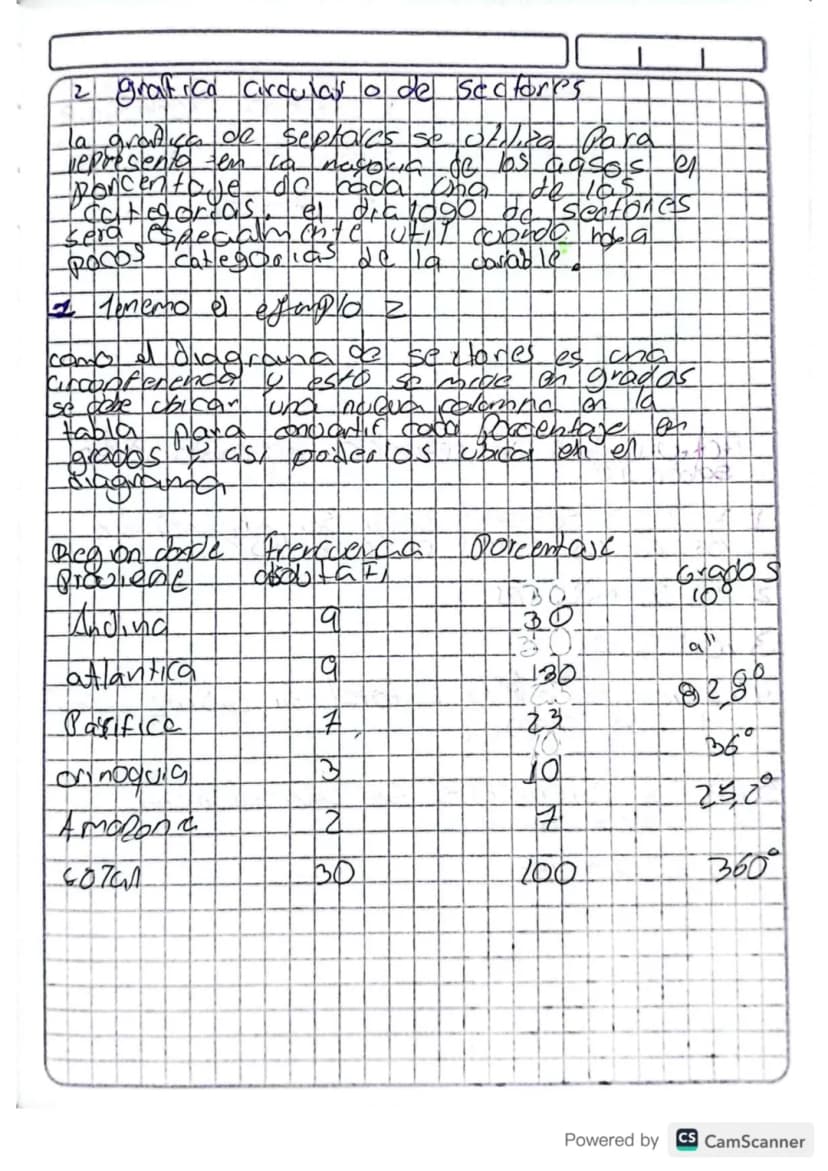 2 grafica circular o de sectores
la grafica de septores se utiliza Para
representa en la mayoria de los casos el
porcentaje de cada una de las
categorias. el dialogo de sectores
sera especialmente util cuando haya
pocos categorias de la variable.
1 Tenemo el ejemplo 2
como el diagrama de sectores es una
circonferencia y esto se mide en grados
se debe ubicar una nueva columna en la
tabla para convertir cada Porcentaje en
grados y asi poderlos ubicar en el
diagrama
Region donde frercuencia Porcentaje
Proviene absoluta Fi Grados
10°
Andina 9 30
a"
atlantica 9 30
82,8°
Pasifica 7 23
36°
orinoquia 3 10
25,2°
Amazona 2 7
total 30 100 360°
Powered by CS CamScanner